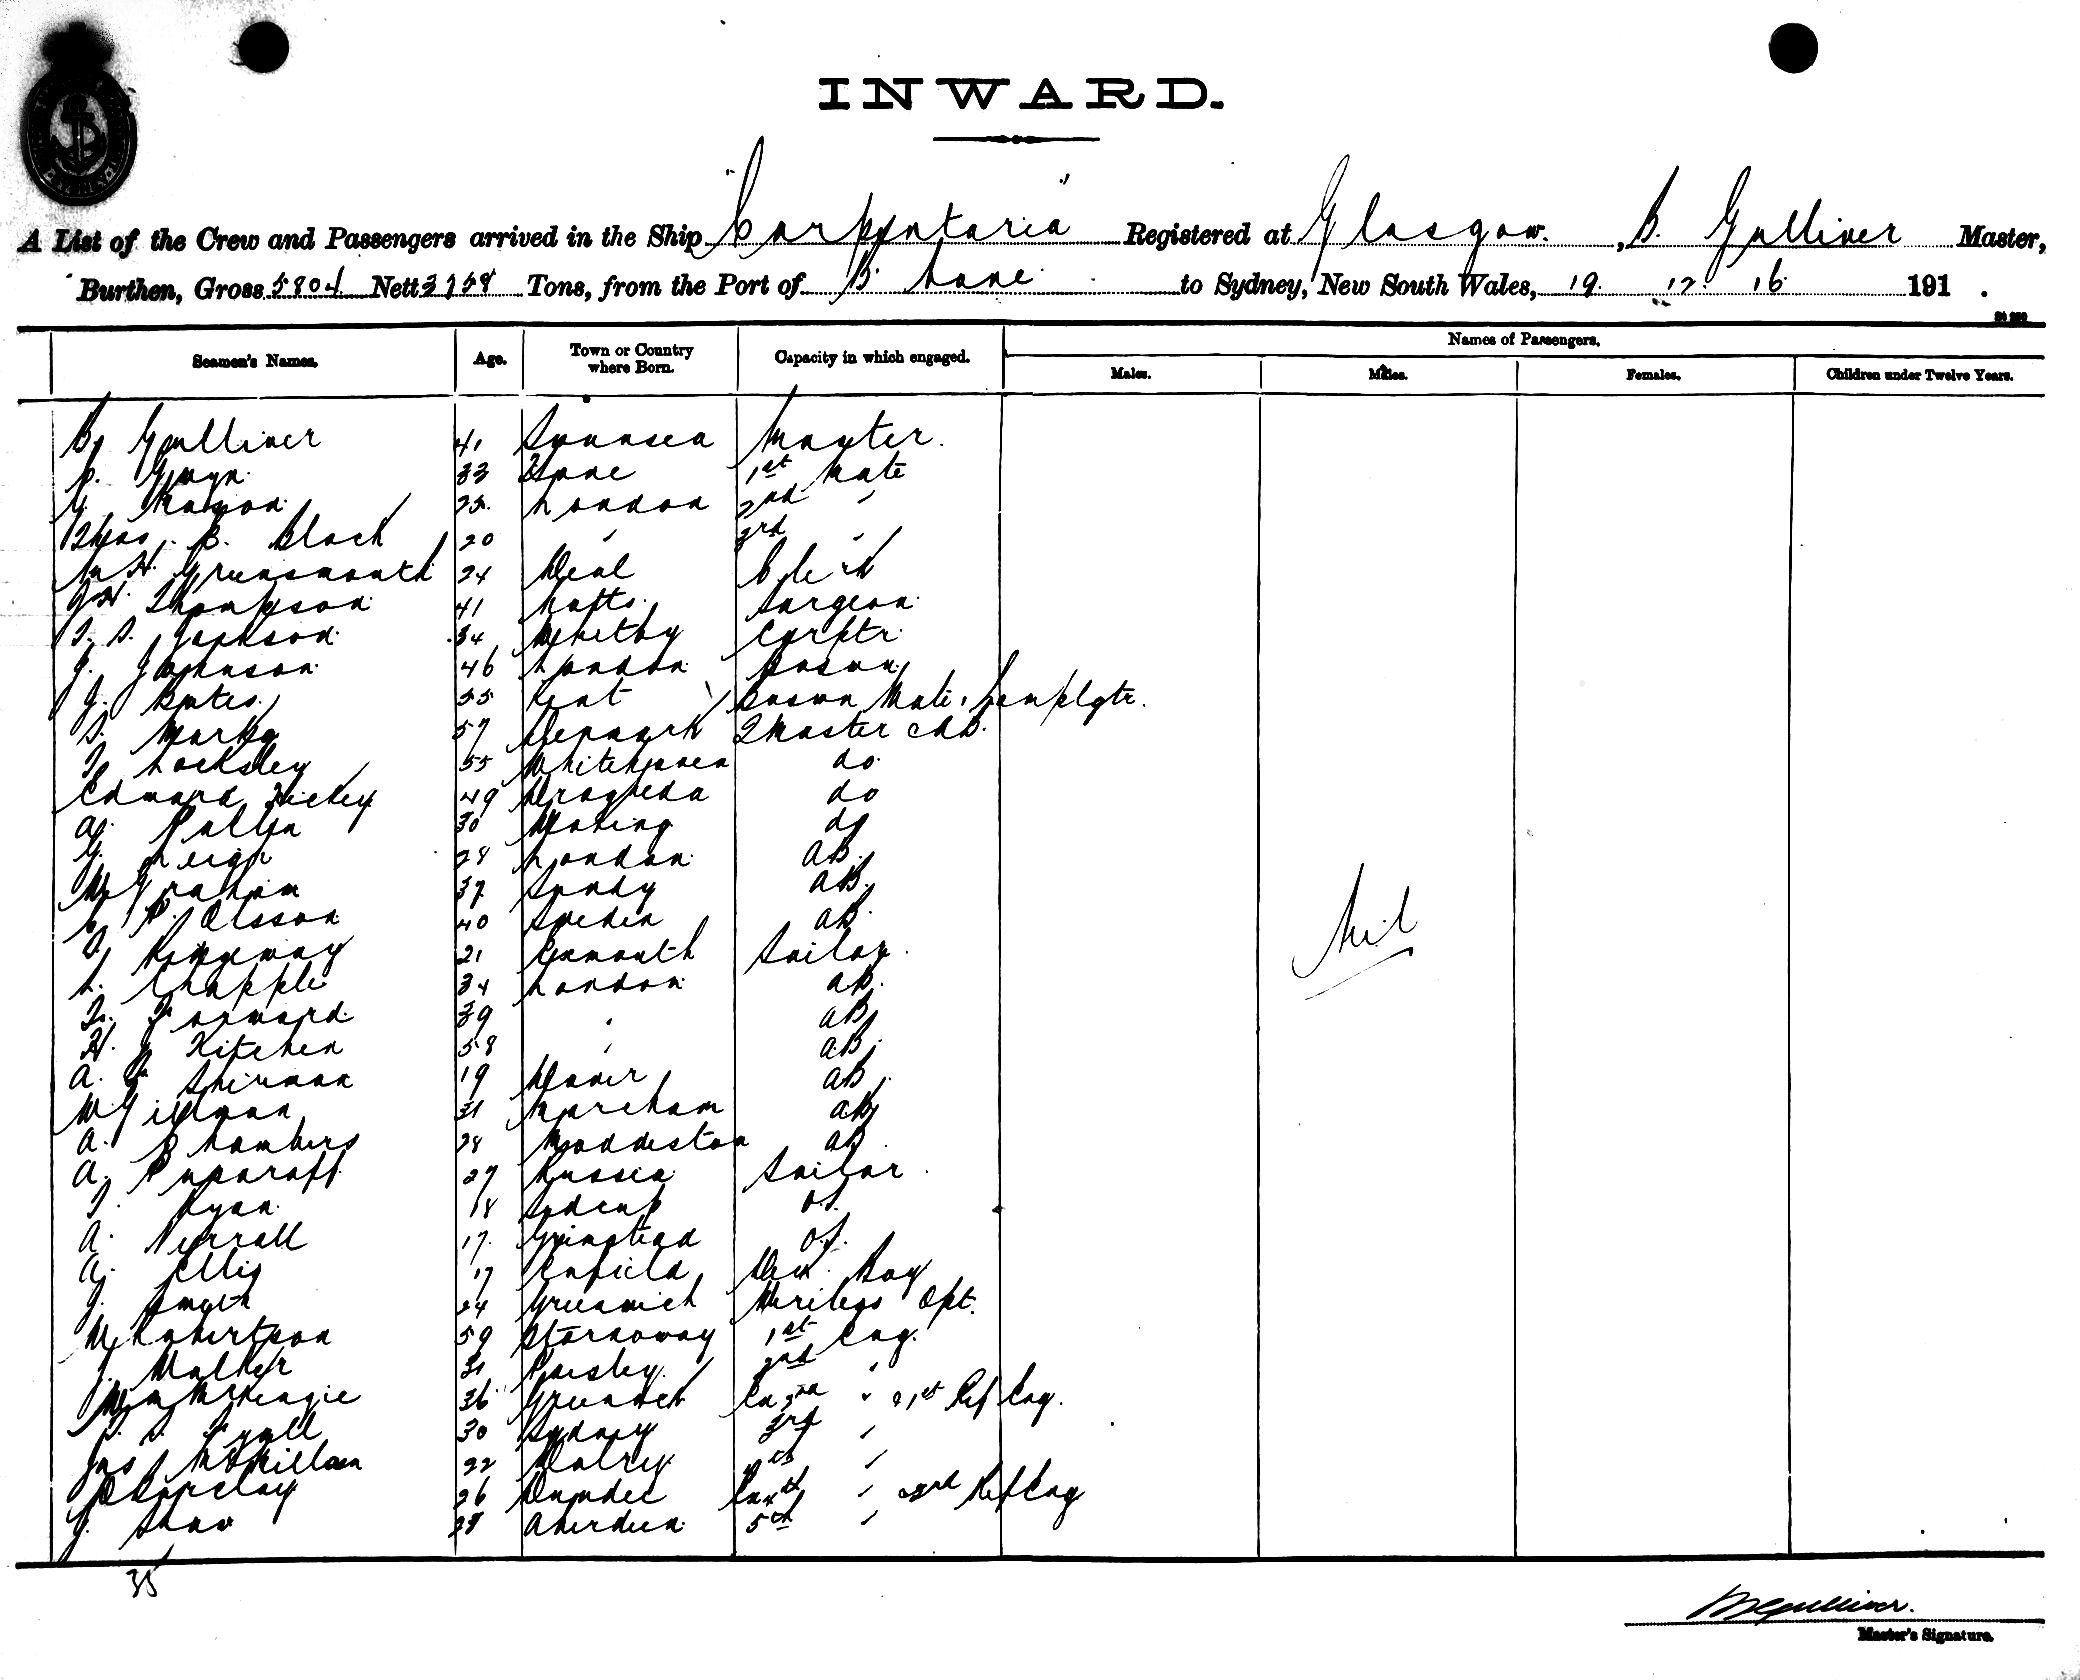 INWARD.
A List of the Crew and Passengers arrived in the Ship "Carpentaria" Registered at Glasgow. B. Gulliver Master,
Burthen, Gross 5804 Nett 3758 Tons, from the Port of B. bane to Sydney, New South Wales, 19. 12. 16 191 .
Names of Passengers.
Seamen's Names. Age. Town or Country where Born. Capacity in which engaged. Males. Males. Females. Children under Twelve Years.
B. Gulliver 41 Swansea Master.
Gwyn 33 1st Mate
25 London 2nd "
Thos. B. Black 20 " 3rd "
24 Deal Clerk
J H. Thompson 41 Notts. Surgeon
T. S. Jackson 34 Whitby Carptr.
J. Johnson 46 London Bosun
J. Bates 55 Kent Bosun Mate & Lamplgtr.
57 Denmark Q Master & AB.
Locksley 55 Whitehaven do
Edward Hickey 49 Drogheda do
A. Pullen 30 Woking do
G. Leigh 28 London AB.
W. Graham 37 Sandy AB.
P. Olsson 40 Sweden AB.
Ridgeway 21 Exmouth Sailor
L. Chapple 34 London AB.
39 " AB
H. J. Kitchen 58 " AB.
A. Sherman 19 Dover AB.
W. Gillman 31 Wareham AB
A. Chambers 28 AB.
A. 27 Russia Sailor.
T. Ryan 18 Sidcup OS.
A. Verrall 17 Grinstead OS.
A. Ellis 17 Enfield Deck Boy
J. Smyth 24 Greenwich Wireless Opt.
W Robertson 59 Stornoway 1st Eng.
J. Walker 31 Paisley 2nd "
Wm McKenzie 36 Greenock Ex 2nd " & 1st Ref Eng.
30 Sydney 3rd "
Jas McMillan 22 Dalry 4th "
Barclay 26 Dundee Ex 4th " & 2nd Ref Eng
J. Shaw 28 Aberdeen 5th "
Nil
35
B Gulliver.
Master's Signature.